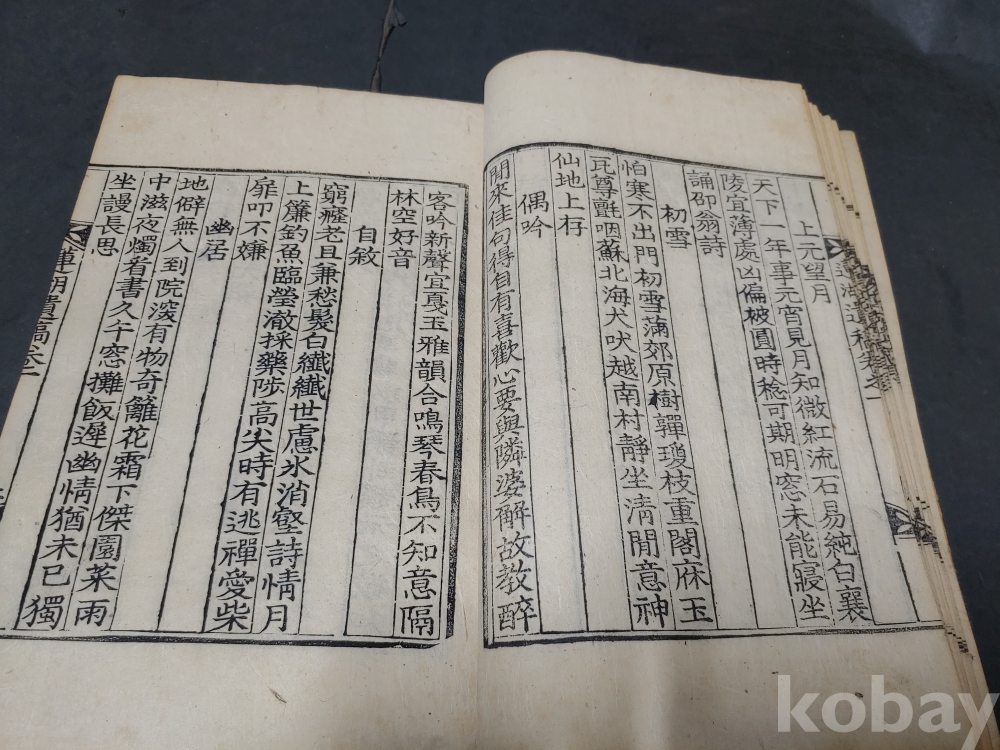 上元望月
天下一年事元宵見月知微紅流石易純白襄
陵宜薄處凶偏被圓時稔可期明窓未能寢坐
誦邵翁詩
初雪
怕寒不出門初雪滿郊原樹嚲瓊枝重閣庥玉
瓦尊氈咽蘇北海犬吠越南村靜坐淸閒意神
仙地上存
偶吟
閒來佳句得自有喜歡心要與隣婆解故教醉
客吟新聲宜戞玉雅韻合鳴琴春鳥不知意隔
林空好音
自敘
窮癃老且兼愁髮白纖纖世慮氷消壑詩情月
上簾釣魚臨瑩澈採藥陟高尖時有逃禪愛柴
扉叩不嫌
幽居
地僻無人到院深有物奇籬花霜下傑園菜雨
中滋夜燭看書久午窓攤飯遲幽情猶未已獨
坐謾長思
蓮湖遺稿卷之一
kobay